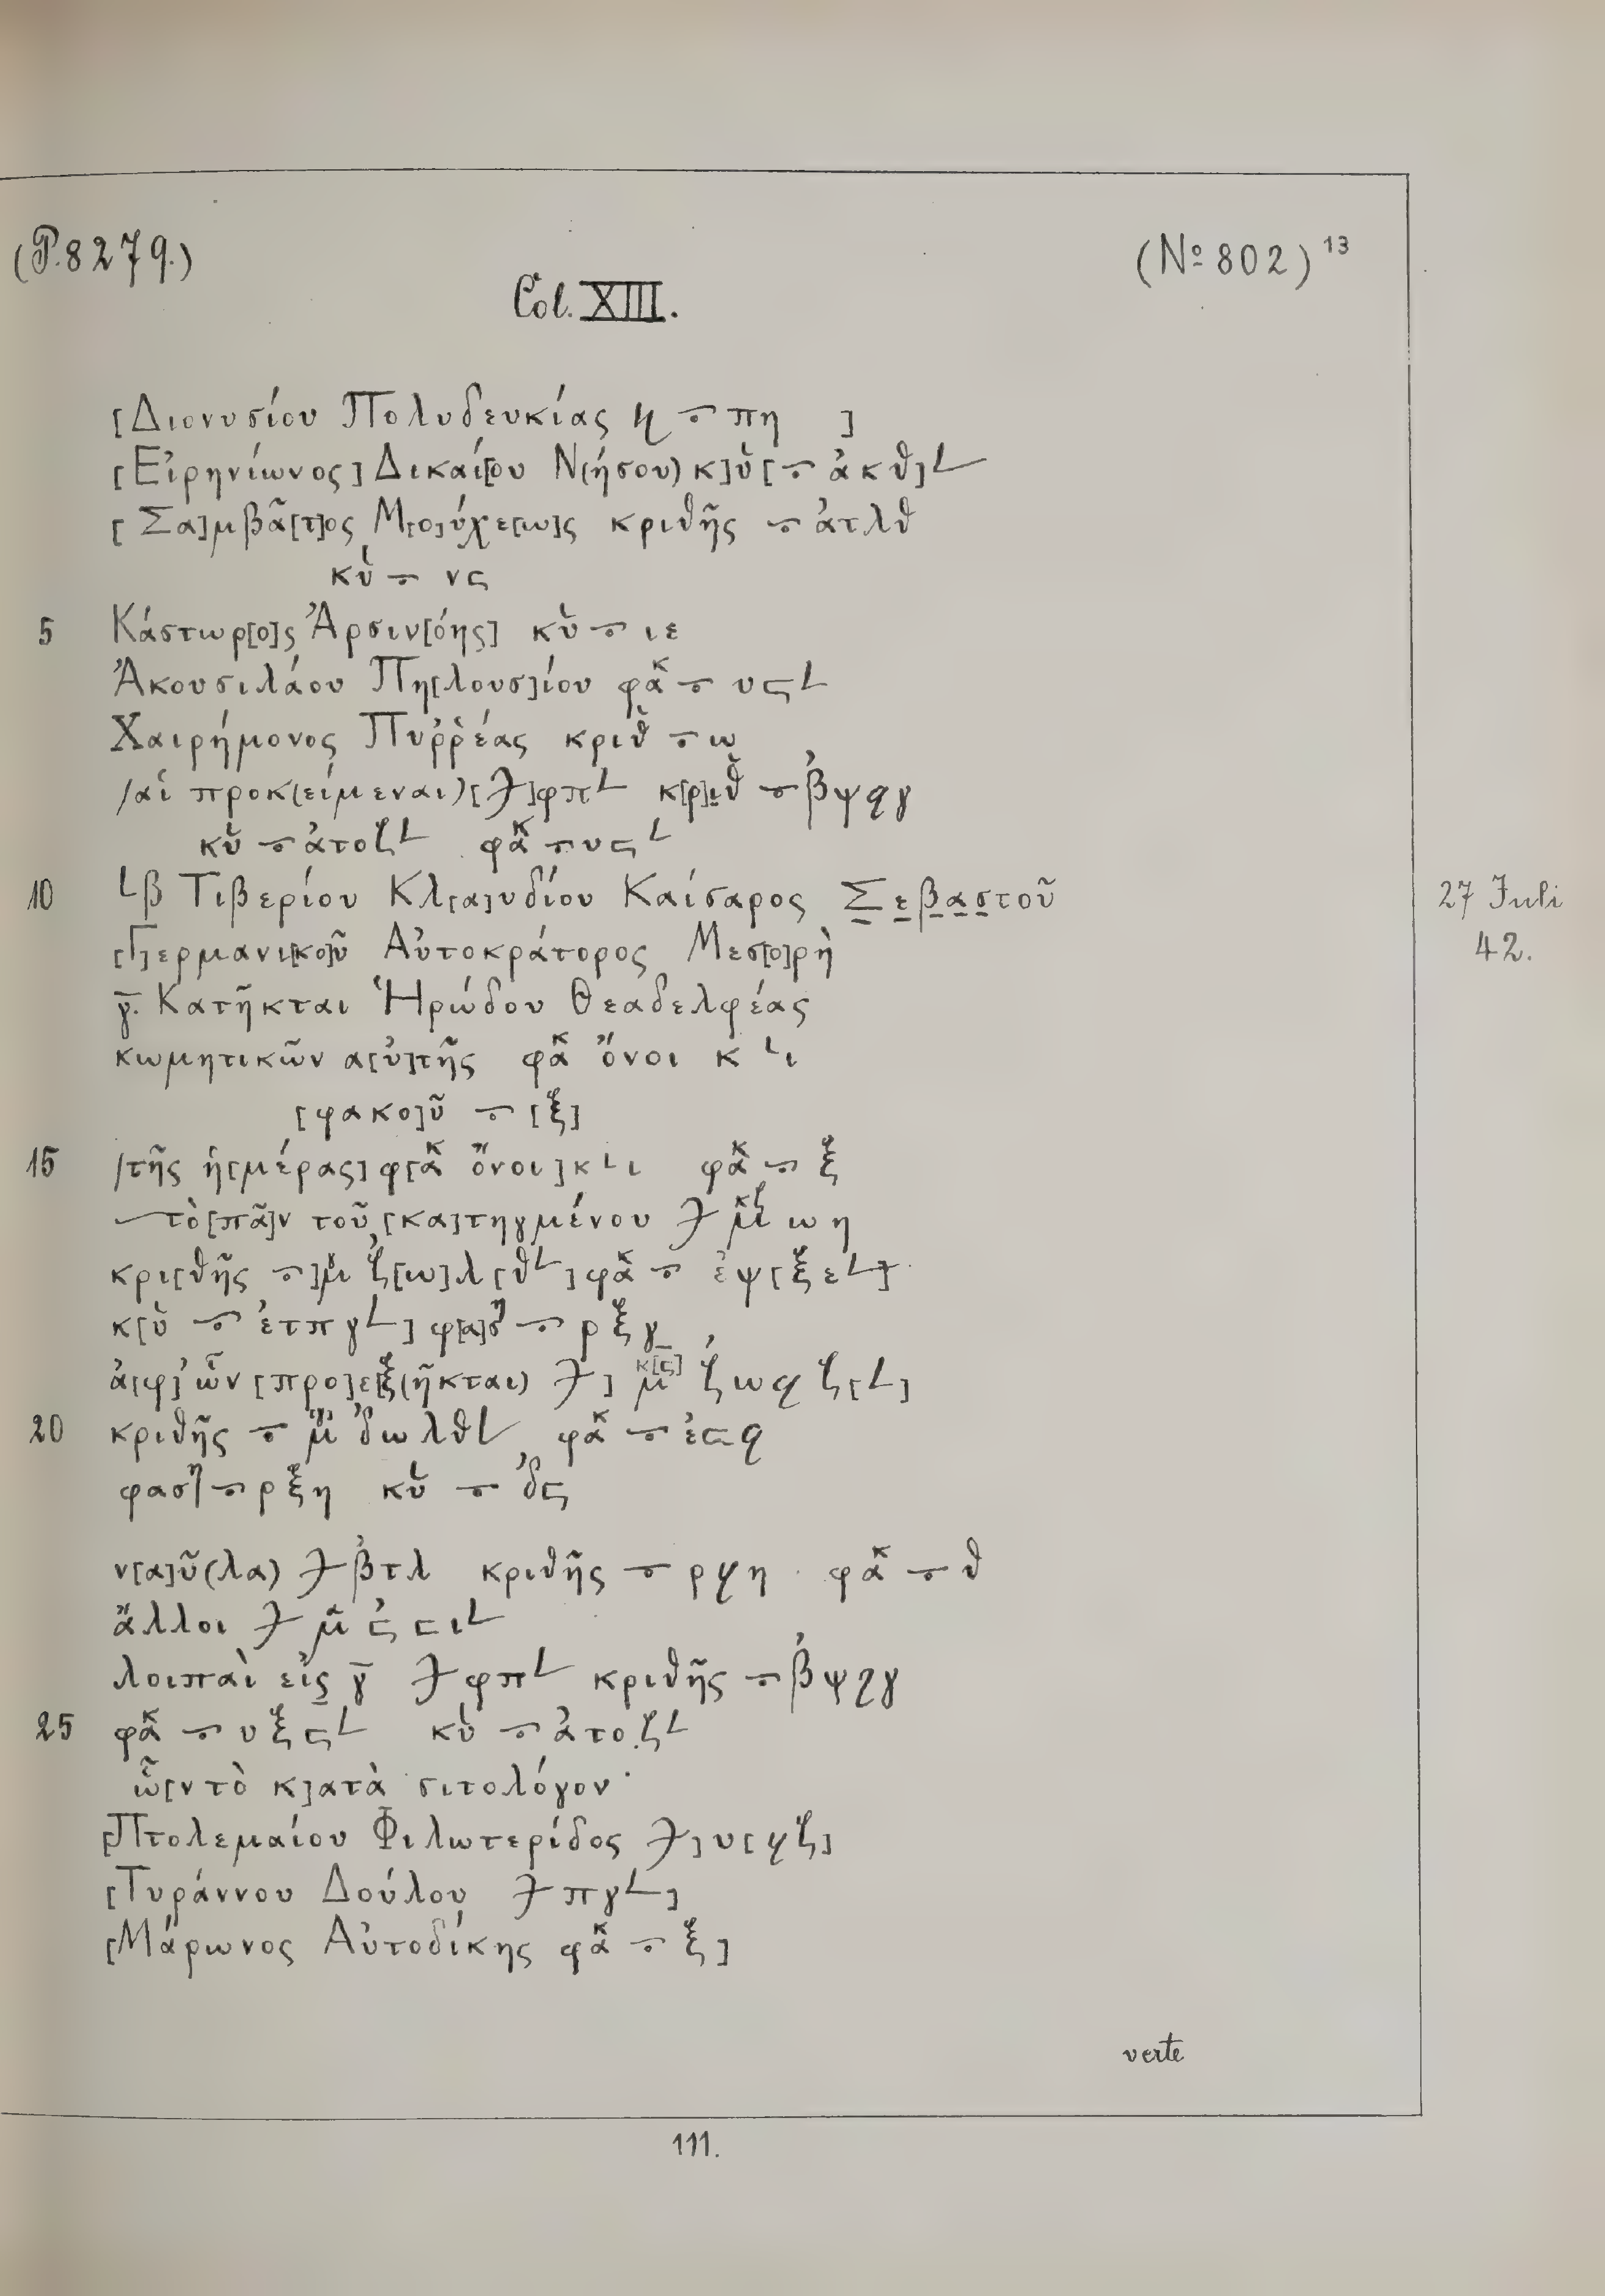 (P. 8279.)
(No 802) 13
Col. XIII.
[Διονυσίου Πολυδευκίας κ̣ 𐆄 πη ]
[Εἰρηνίωνος] Δικαί[ο]υ Ν(ήσου) κ]ὺ̓[𐆄 ἀκθ]𐅵
[Σα]μβᾶ[τ]ος Μ[ο]ύχε[ω]ς κριθῆς 𐆄 ἀτλθ
κὺ̓ 𐆄 νϛ
5 Κάστωρ[ο]ς Ἀρσιν[όης] κὺ̓ 𐆄 ιε
Ἀκουσιλάου Πη[λουσ]ίου φακ 𐆄 υϛ 𐅵
Χαιρήμονος Πυῤῥέας κριθ 𐆄 ω
/αἱ προκ(είμεναι) [𐆅]φπ𐅵 κ[ρ]ιθ 𐆄 βψϙγ
κὺ̓ 𐆄 ἀτοζ𐅵 φακ 𐆄 υϛ𐅵
10 𐅹β Τιβερίου Κλ[α]υδίου Καίσαρος Σεβαστοῦ
27 Juli 42.
[Γ]ερμανι[κο]ῦ Αὐτοκράτορος Μεσ[ο]ρὴ
γ̄. Κατῆκται Ἡρώδου Θεαδελφέας
κωμητικῶν α[ὐ]τῆς φακ ὄνοι κ 𐅹ι
[φακο]ῦ 𐆄 [ξ]
15 /τῆς ἡ[μέρας] φ[ακ ὄνοι] κ𐅹ι φακ 𐆄 ξ
τὸ [πᾶ]ν τοῦ [κα]τηγμένου 𐆅 μκζ ωη
κρι[θῆς 𐆄]μ ζ[ω]λ[θ𐅵] φακ 𐆄 ἐψ[ξε𐅵]
κ[ὺ̓ 𐆄 ἐτπγ𐅵] φ[α]ση 𐆄 ρξγ
ἀ[φ]’ ὧν [προ]εξ(ῆκται) 𐆅] μκ[ϛ] ζωϙζ[𐅵]
20 κριθῆς 𐆄 μη δωλθ𐅵 φακ 𐆄 ἐϛϙ
φαση 𐆄 ρξη κὺ̓ 𐆄 δϛ
ν[α]ῦ(λα) 𐆅 βτλ κριθῆς 𐆄 ρϙη φακ 𐆄 θ
ἄλλοι 𐆅 μα ϛϛι𐅵
λοιπαὶ εἰς γ̄ 𐆅 φπ𐅵 κριθῆς 𐆄 βψϙγ
25 φακ 𐆄 υξϛ𐅵 κὺ̓ 𐆄 ἀτοζ𐅵
ὧ[ν τὸ κ]ατὰ σιτολόγον·
[Πτολεμαίου Φιλωτερίδος 𐆅] υ[ϙζ]
[Τυράννου Δούλου 𐆅 πγ𐅵]
[Μάρωνος Αὐτοδίκης φακ 𐆄 ξ]
verte
111.